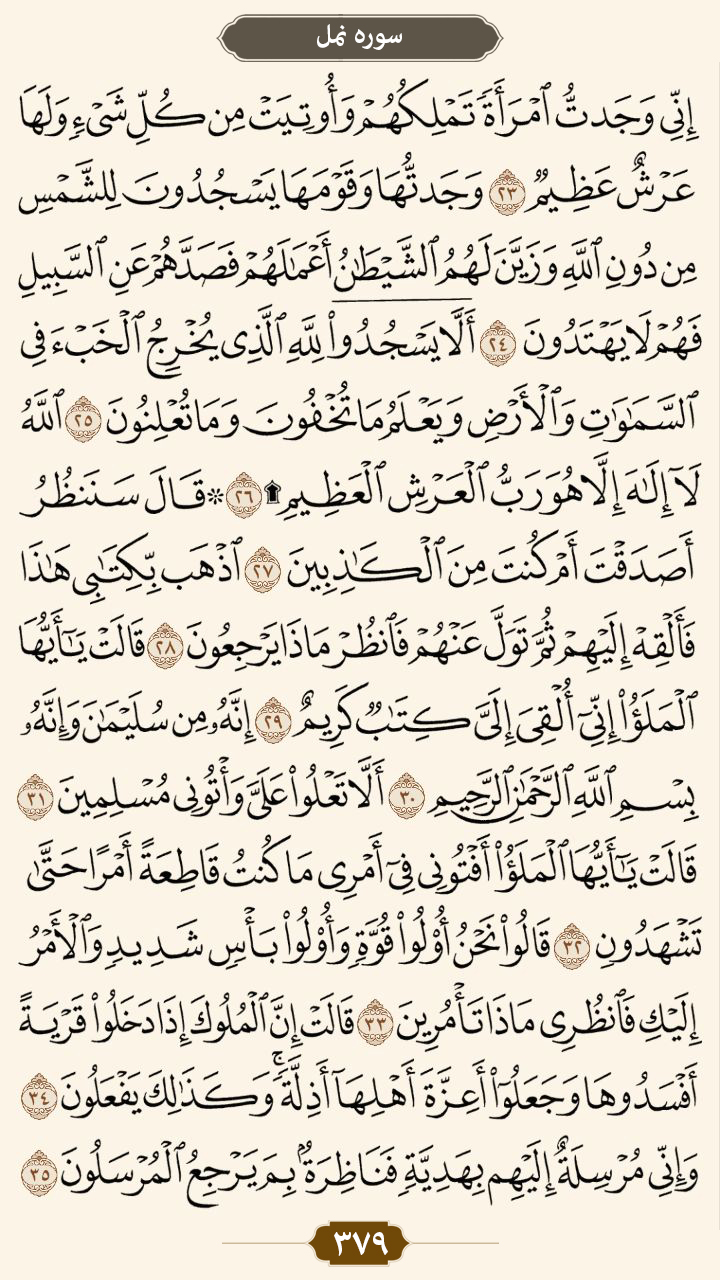 سوره نمل
إِنِّي وَجَدتُّ ٱمۡرَأَةٗ تَمۡلِكُهُمۡ وَأُوتِيَتۡ مِن كُلِّ شَيۡءٖ وَلَهَا
عَرۡشٌ عَظِيمٞ ٢٣ وَجَدتُّهَا وَقَوۡمَهَا يَسۡجُدُونَ لِلشَّمۡسِ
مِن دُونِ ٱللَّهِ وَزَيَّنَ لَهُمُ ٱلشَّيۡطَٰنُ أَعۡمَٰلَهُمۡ فَصَدَّهُمۡ عَنِ ٱلسَّبِيلِ
فَهُمۡ لَا يَهۡتَدُونَ ٢٤ أَلَّا يَسۡجُدُواْۤ لِلَّهِ ٱلَّذِي يُخۡرِجُ ٱلۡخَبۡءَ فِي
ٱلسَّمَٰوَٰتِ وَٱلۡأَرۡضِ وَيَعۡلَمُ مَا تُخۡفُونَ وَمَا تُعۡلِنُونَ ٢٥ ٱللَّهُ
لَآ إِلَٰهَ إِلَّا هُوَ رَبُّ ٱلۡعَرۡشِ ٱلۡعَظِيمِ۩ ٢٦ ۞قَالَ سَنَنظُرُ
أَصَدَقۡتَ أَمۡ كُنتَ مِنَ ٱلۡكَٰذِبِينَ ٢٧ ٱذۡهَب بِّكِتَٰبِي هَٰذَا
فَأَلۡقِهۡ إِلَيۡهِمۡ ثُمَّ تَوَلَّ عَنۡهُمۡ فَٱنظُرۡ مَاذَا يَرۡجِعُونَ ٢٨ قَالَتۡ يَٰٓأَيُّهَا
ٱلۡمَلَؤُاْ إِنِّيٓ أُلۡقِيَ إِلَيَّ كِتَٰبٞ كَرِيمٌ ٢٩ إِنَّهُۥ مِن سُلَيۡمَٰنَ وَإِنَّهُۥ
بِسۡمِ ٱللَّهِ ٱلرَّحۡمَٰنِ ٱلرَّحِيمِ ٣٠ أَلَّا تَعۡلُواْ عَلَيَّ وَأۡتُونِي مُسۡلِمِينَ ٣١
قَالَتۡ يَٰٓأَيُّهَا ٱلۡمَلَؤُاْ أَفۡتُونِي فِيٓ أَمۡرِي مَا كُنتُ قَاطِعَةً أَمۡرًا حَتَّىٰ
تَشۡهَدُونِ ٣٢ قَالُواْ نَحۡنُ أُوْلُواْ قُوَّةٖ وَأُوْلُواْ بَأۡسٖ شَدِيدٖ وَٱلۡأَمۡرُ
إِلَيۡكِ فَٱنظُرِي مَاذَا تَأۡمُرِينَ ٣٣ قَالَتۡ إِنَّ ٱلۡمُلُوكَ إِذَا دَخَلُواْ قَرۡيَةً
أَفۡسَدُوهَا وَجَعَلُوٓاْ أَعِزَّةَ أَهۡلِهَآ أَذِلَّةٗۚ وَكَذَٰلِكَ يَفۡعَلُونَ ٣٤
وَإِنِّي مُرۡسِلَةٌ إِلَيۡهِم بِهَدِيَّةٖ فَنَاظِرَةُۢ بِمَ يَرۡجِعُ ٱلۡمُرۡسَلُونَ ٣٥
٣٧٩